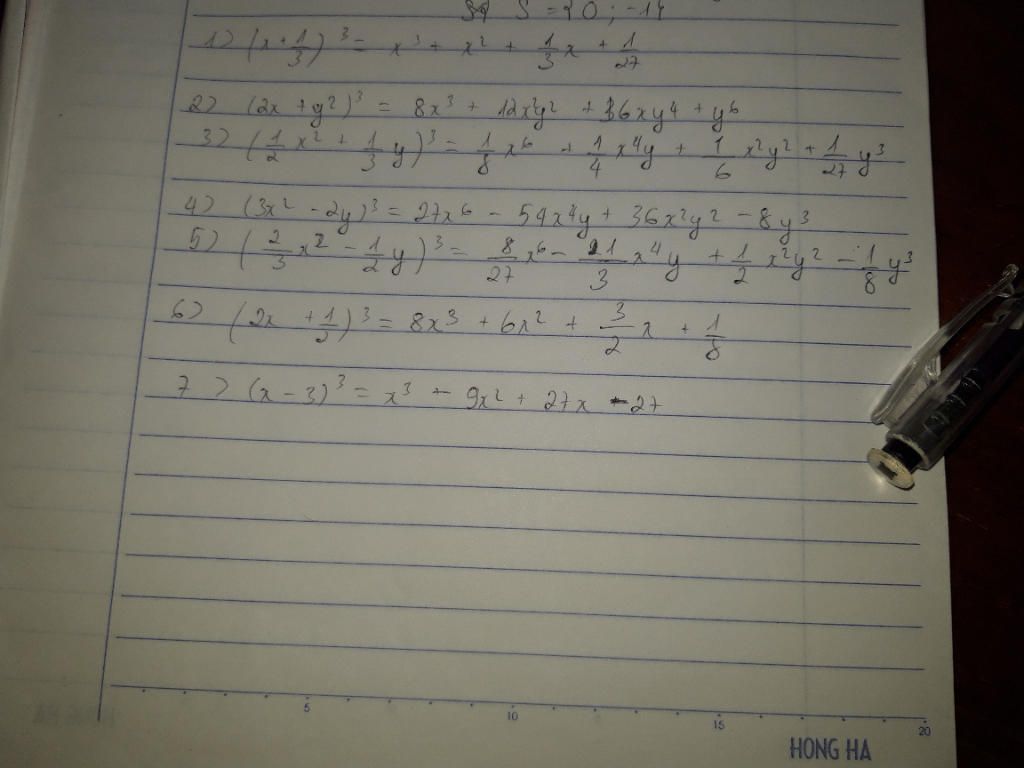 S = {0 ; -14
1) (x + 1/3)³ = x³ + x² + 1/3 x + 1/27
2) (2x + y²)³ = 8x³ + 12x²y² + 6xy⁴ + y⁶
3) (1/2 x² + 1/3 y)³ = 1/8 x⁶ + 1/4 x⁴y + 1/6 x²y² + 1/27 y³
4) (3x² - 2y)³ = 27x⁶ - 54x⁴y + 36x²y² - 8y³
5) (2/3 x² - 1/2 y)³ = 8/27 x⁶ - 21/3 x⁴y + 1/2 x²y² - 1/8 y³
6) (2x + 1/2)³ = 8x³ + 6x² + 3/2 x + 1/8
7) (x - 3)³ = x³ - 9x² + 27x - 27
5 10 15 20
HONG HA